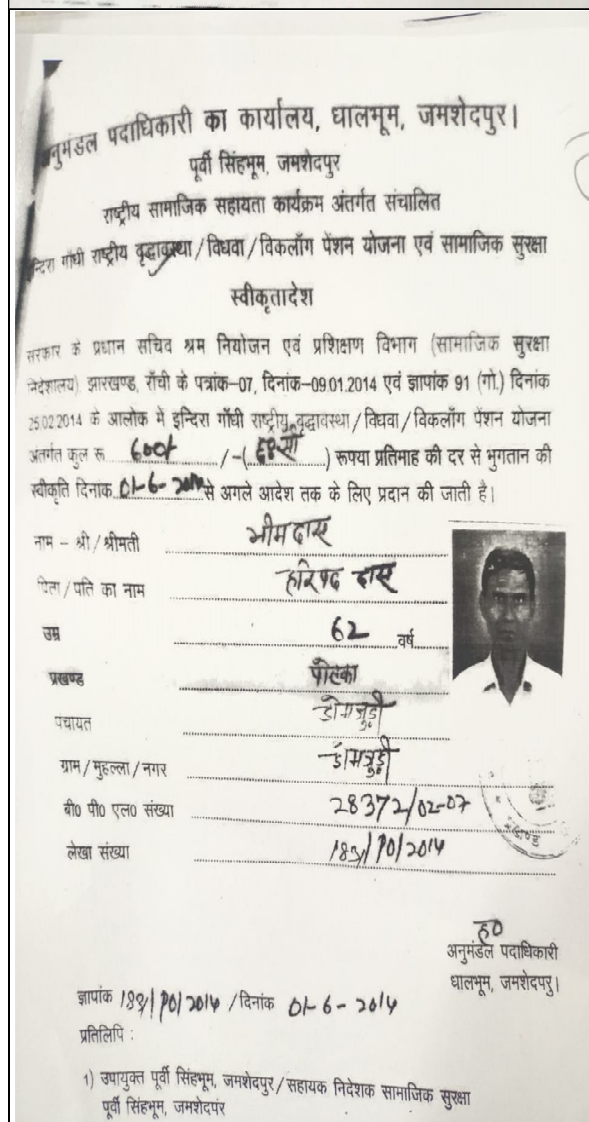 अनुमंडल पदाधिकारी का कार्यालय, धालभूम, जमशेदपुर।
पूर्वी सिंहभूम, जमशेदपुर
राष्ट्रीय सामाजिक सहायता कार्यक्रम अंतर्गत संचालित
इन्दिरा गाँधी राष्ट्रीय वृद्धावस्था/विधवा/विकलाँग पेंशन योजना एवं सामाजिक सुरक्षा
स्वीकृतादेश
सरकार के प्रधान सचिव श्रम नियोजन एवं प्रशिक्षण विभाग (सामाजिक सुरक्षा
निदेशालय) झारखण्ड, राँची के पत्रांक-07, दिनांक-09.01.2014 एवं ज्ञापांक 91 (गो.) दिनांक
25.02.2014 के आलोक में इन्दिरा गाँधी राष्ट्रीय वृद्धावस्था/विधवा/विकलाँग पेंशन योजना
अंतर्गत कुल रू 600/ /-( ) रूपया प्रतिमाह की दर से भुगतान की
स्वीकृति दिनांक 01-6-2014 से अगले आदेश तक के लिए प्रदान की जाती है।
नाम - श्री/श्रीमती भीम दास
पिता/पति का नाम हरिपद दास
उम्र 62 वर्ष
प्रखण्ड पोटका
पंचायत डोमजुड़ी
ग्राम/मुहल्ला/नगर डोमजुड़ी
बी0 पी0 एल0 संख्या 28372/02-07
लेखा संख्या /PO/2014
ह0
अनुमंडल पदाधिकारी
धालभूम, जमशेदपुर।
ज्ञापांक /PO/2014 /दिनांक 01-6-2014
प्रतिलिपि :
1) उपायुक्त पूर्वी सिंहभूम, जमशेदपुर/सहायक निदेशक सामाजिक सुरक्षा
पूर्वी सिंहभूम, जमशेदपुर